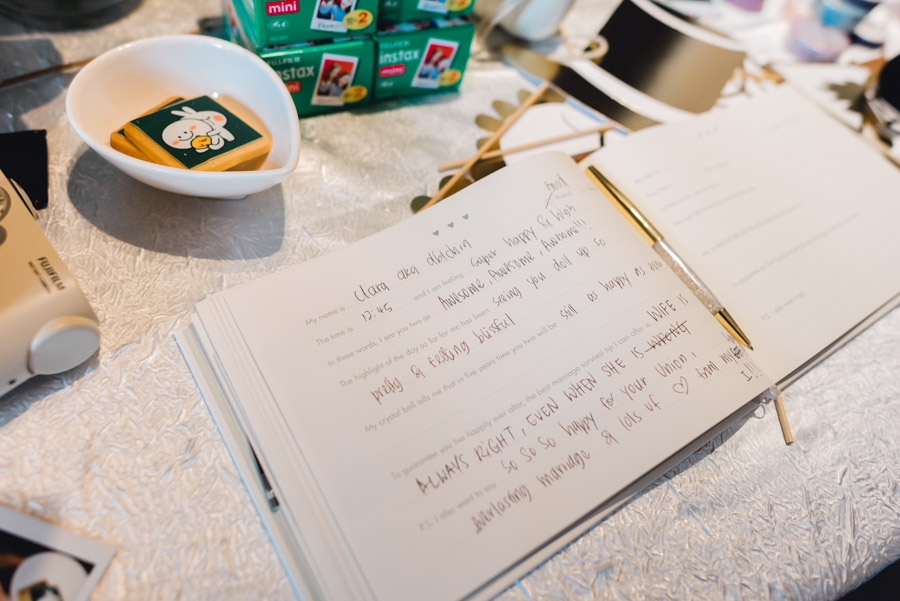 mini
FUJIFILM
instax
mini
instax
mini
FUJIFILM
My name is Clara aka
The time is 12:45 and I am feeling super happy & high
In three words, I see you two as Awesome, Awesome, Awesome!!!
The highlight of the day so far for me has been seeing you doll up so
pretty & feeling blissful
My crystal ball tells me that in five years time you two will be still as happy as
To guarantee you live happily ever after, the best marriage survival tip I can offer is WIFE IS
ALWAYS RIGHT, EVEN WHEN SHE IS
P.S. I also want to say so so so happy for your union,
everlasting marriage & lots of ♡